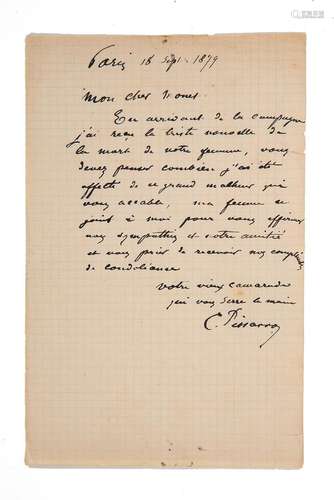 Paris 18 Sept. 1879
Mon cher
En arrivant de la campagne
j'ai reçu la triste nouvelle de
la mort de votre femme, vous
devez penser combien j'ai été
affecté de ce grand malheur qui
vous accable, ma femme se
joint à moi pour vous affirmer
nos sympathies et notre amitié
et vous prier de recevoir nos compliments
de condoléance
votre vieux camarade
qui vous serre la main
C. Pissarro